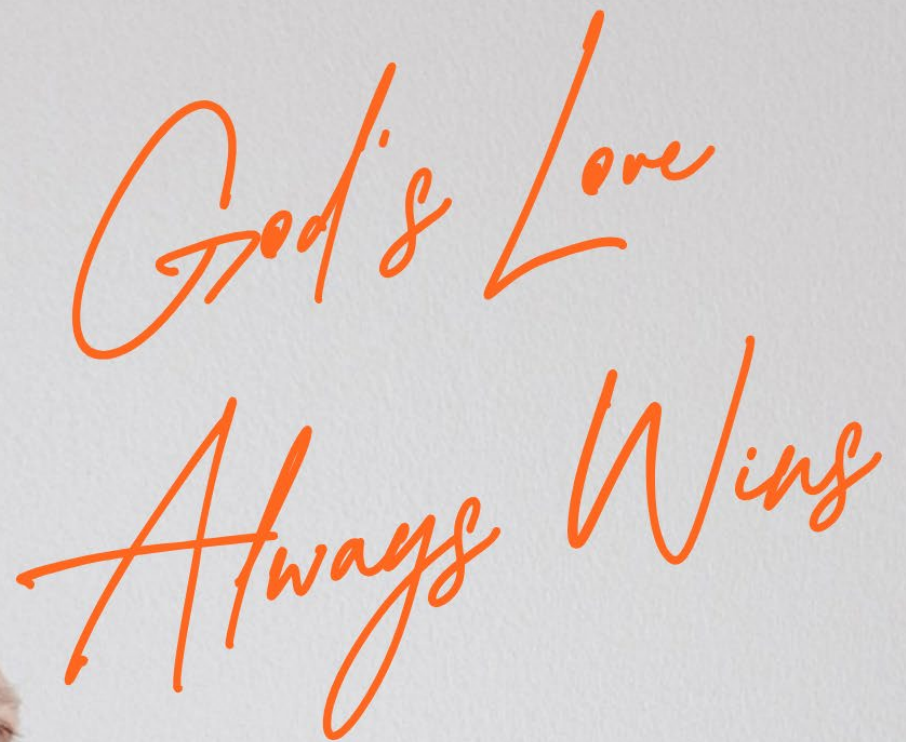 God's Love
Always Wins